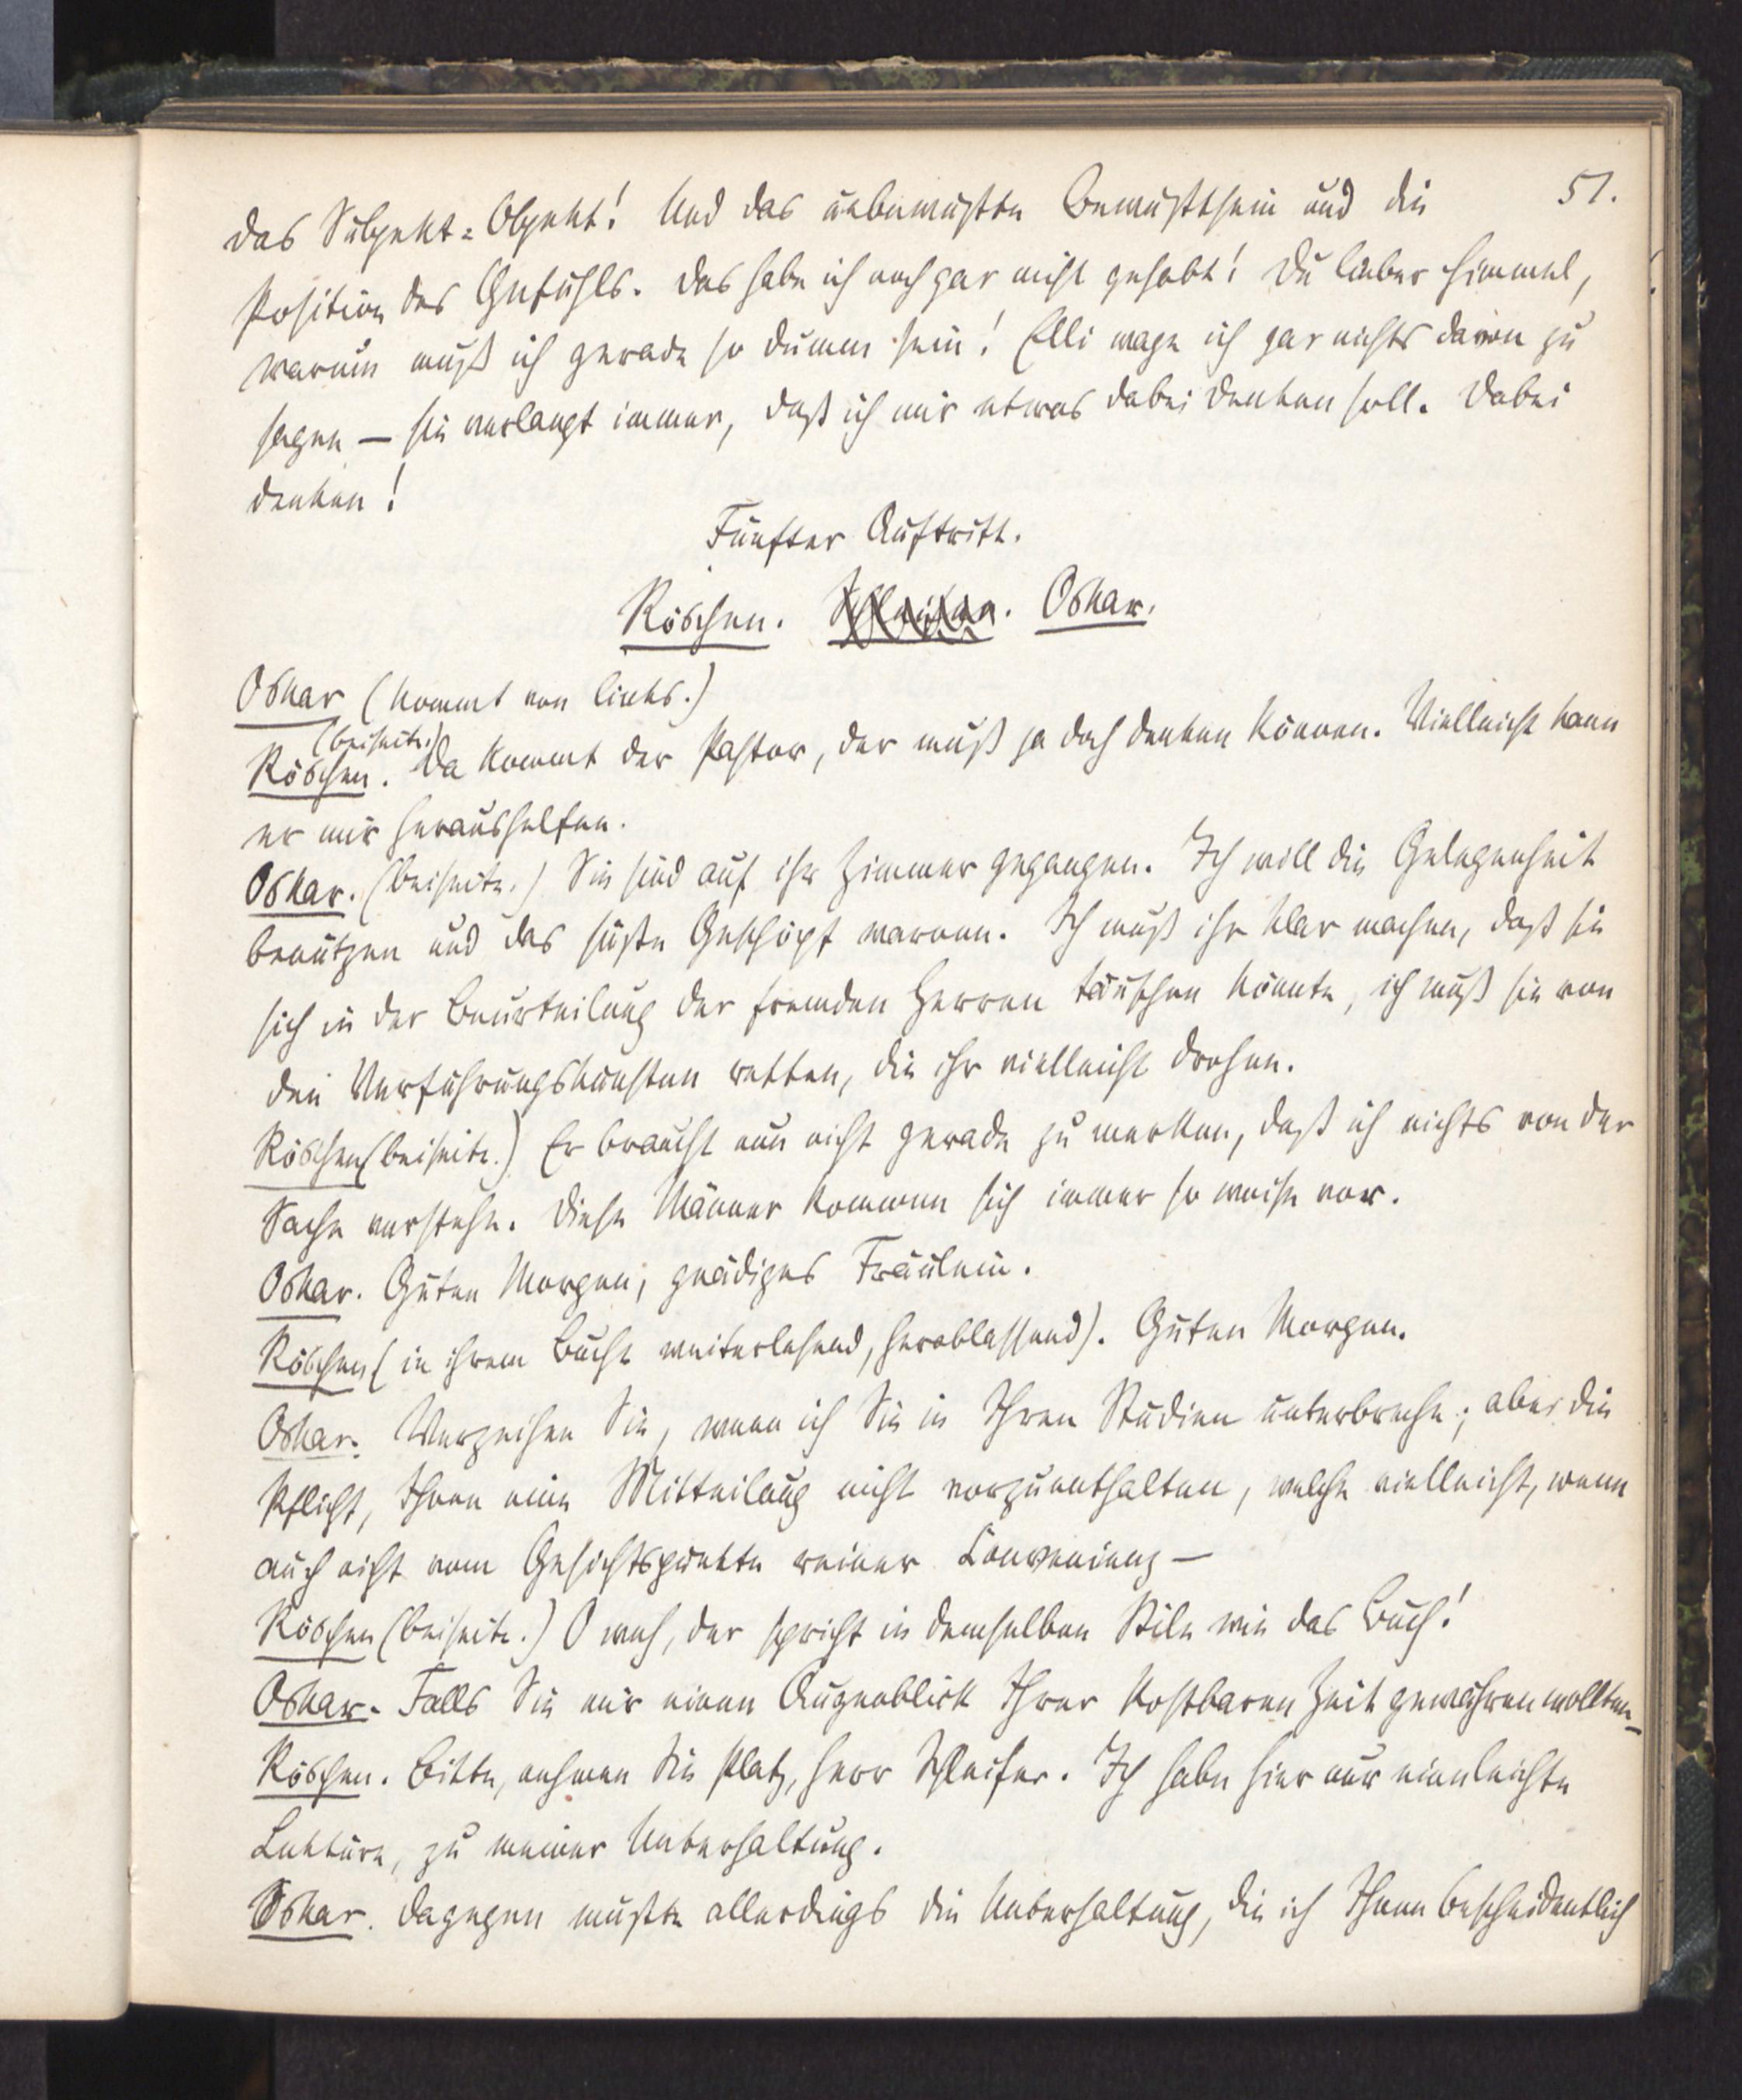 51.
das Subjekt=Objekt! Und das unbewußte Bewußtsein und die
Position des Gefühls. Das habe ich noch gar nicht gehabt! Du lieber Himmel,
warum muß ich gerade so dumm sein! Elli wage ich gar nichts davon zu
sagen – sie verlangt immer, daß ich mir etwas dabei denken soll. Dabei
denken!
Fünfter Auftritt.
Röschen. Schleifer. Oskar.
Oskar (kommt von links.)
(beiseite.)
Röschen. Da kommt der Pastor, der muß ja doch denken können. Vielleicht kann
er mir heraushelfen.
Oskar. (beiseite.) Sie sind auf ihr Zimmer gegangen. Ich will die Gelegenheit
benutzen und das süße Geschöpf warnen. Ich muß ihr klar machen, daß sie
sich in der Beurteilung der fremden Herren täuschen könnte, ich muß sie von
den Verführungskünsten retten, die ihr vielleicht drohen.
Röschen (beiseite.) Er braucht nun nicht gerade zu merken, daß ich nichts von der
Sache verstehe. Diese Männer kommen sich immer so weise vor.
Oskar. Guten Morgen, gnädiges Fräulein.
Röschen (in ihrem Buche weiterlesend, herablassend). Guten Morgen.
Oskar. Verzeihen Sie, wenn ich Sie in Ihren Studien unterbreche; aber die
Pflicht, Ihnen eine Mitteilung nicht vorzuenthalten, welche vielleicht, wenn
auch nicht vom Gesichtspunkte reiner Convenienz –
Röschen (beiseite.) O weh, der spricht in demselben Stile wie das Buch!
Oskar. Falls Sie mir einen Augenblick Ihrer kostbaren Zeit gewähren wollten –
Röschen. Bitte, nehmen Sie Platz, Herr Schleifer. Ich habe hier nur eine leichte
Lektüre, zu meiner Unterhaltung.
Oskar. Dagegen müßte allerdings die Unterhaltung, die ich Ihnen bescheidentlich